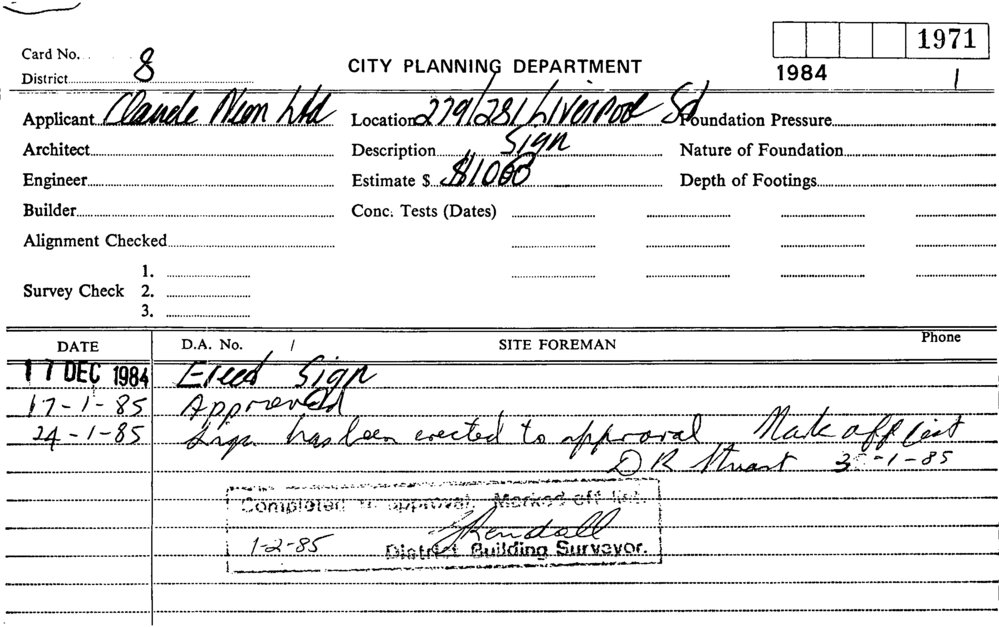 1971
Card No.
District 8
CITY PLANNING DEPARTMENT
1984 1
Applicant Claude Neon Ltd Location 279/281 Liverpool Sd Foundation Pressure
Architect Description Sign Nature of Foundation
Engineer Estimate $ $1000 Depth of Footings
Builder Conc. Tests (Dates)
Alignment Checked
1.
Survey Check 2.
3.
DATE D.A. No. / SITE FOREMAN Phone
17 DEC 1984 Erect Sign
17-1-85 Approved
24-1-85 Sign has been erected to approval Mark off list
D R Stuart -1-85
Completed to approval. Marked off list.
1-2-85 Kendall
District Building Surveyor.